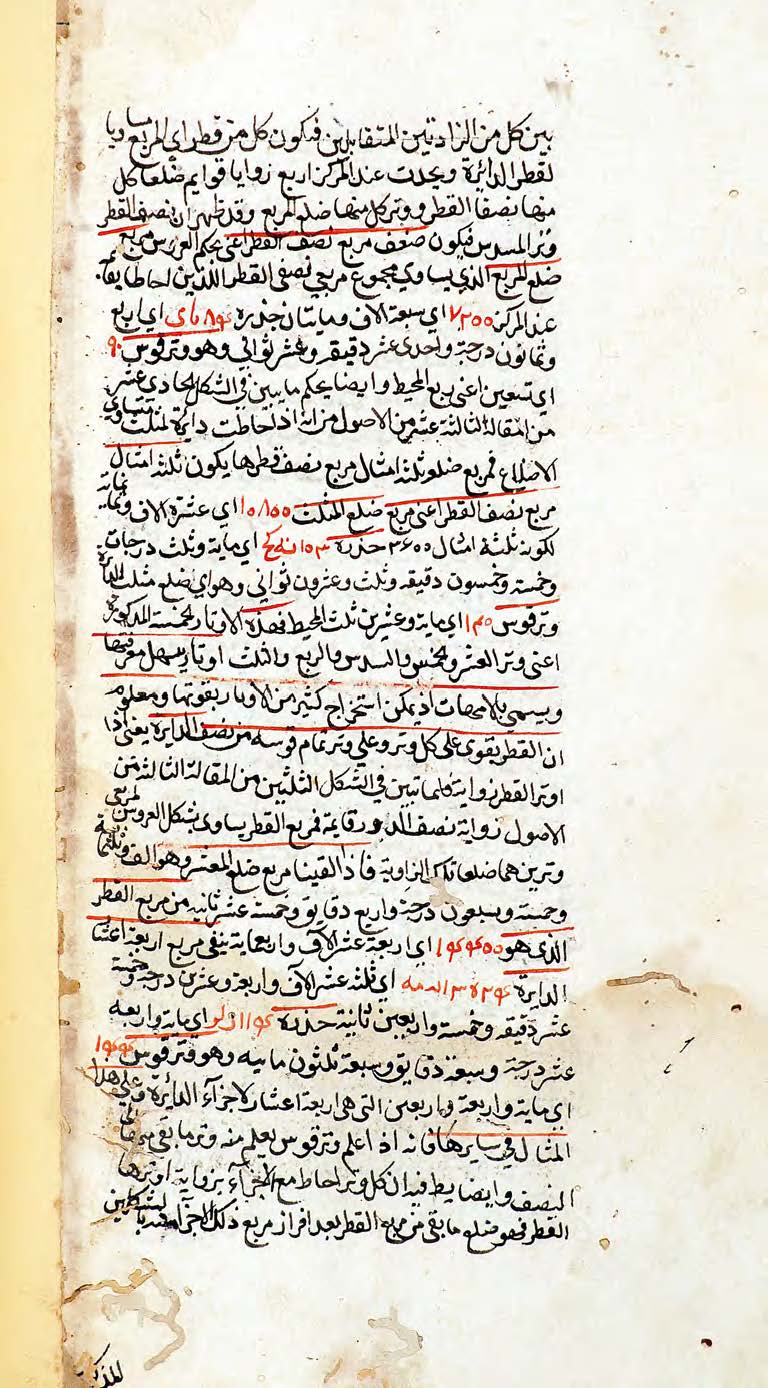 بين كل من الزاويتين المتقابلتين فيكون كل من قطري المربع مساويا
لقطر الدائرة ويحدث عند المركز اربع زوايا قوايم ضلعا كل
منها نصفا القطر ووتر كل منها ضلع المربع وقد ظهر ان نصف القطر
وتر المسدس فيكون ضعف مربع نصف القطر اعني بحكم العروس مربع
ضلع المربع الذي يساوي مجموع مربعي نصفي القطر اللذين احاطا بقائمة
عند المركز ٧٢٠٠ اي سبعة الاف ومايتان جذره فد نا ى اي اربع
وثمانون درجة واحدى عشر دقيقه وعشر ثواني وهو وتر قوس ٩٠
اي تسعين اعني ربع المحيط وايضا بحكم ما بين في الشكل الحادي عشر
من المقالة الثالثة عشر من الاصول من انه اذا احاطت دايرة لمثلث متساوي
الاضلاع فمربع ضلعه ثلثة امثال مربع نصف قطرها يكون ثلثة امثال
مربع نصف القطر اعني مربع ضلع المثلث ١٠٨٠٠ اي عشرة الاف وثمانمايه
لكونه ثلثة امثال ٣٦٠٠ جذره ١٠٣ نه كج اي مايه وثلث درجات
وخمسة وخمسون دقيقه وثلث وعشرون ثواني وهو اي ضلع مثلث الدائرة
وتر قوس ١٢٠ اي مايه وعشرين ثلث المحيط فهذه الاوتار الخمسة المذكورة
اعني وتر العشر والخمس والسدس والربع والثلث اوتار يسهل معرفتها
ويسمي بالامهات اذ يمكن استخراج كثير من الاوتار بقوتها ومعلوم
ان القطر يقوي علي كل وتر وعلي وتر تمام قوسه من نصف الدايرة يعني اذا
اوتر القطر زواية كلما تبين في الشكل الثلثين من المقالة الثالثة من
الاصول زواية نصف الدور قايمة فمربع القطر يساوى بشكل العروس لمربعي
وترين هما ضلعا تلك الزاوية فاذا القينا مربع ضلع المعشر وهو الف وثلثماية
وخمسة وسبعون درجة واربع دقايق وخمسة عشر ثانيه من مربع القطر
الذي هو ١٤٤٠٠ اي اربعة عشر الاف واربعماية يبقى مربع اربعة اعشار
الدايرة ١٣٠٢٤ اي ثلثة عشر الاف واربعة وعشرين درجة وخمسة
عشر دقيقه وخمسة واربعين ثانية جذره ١١٤ ز لز اي مايه واربعه
عشر درجة وسبعة دقايق وسبعة ثلثون ثانيه وهو وتر قوس ١٤٤
اي مايه واربعة واربعين التي هي اربعة اعشار لاجزآء الدائرة وعلي هذا
المثال في سايرها فانه اذا علم وتر قوس يعلم منه وتر ما بقي منها الي
النصف وايضا يط فيه ان كل وتر احاط مع الاجزآء بزواية اوترها
القطر فهو ضلع ما بقي من مربع القطر بعد افراز مربع ذلك الاجزآء